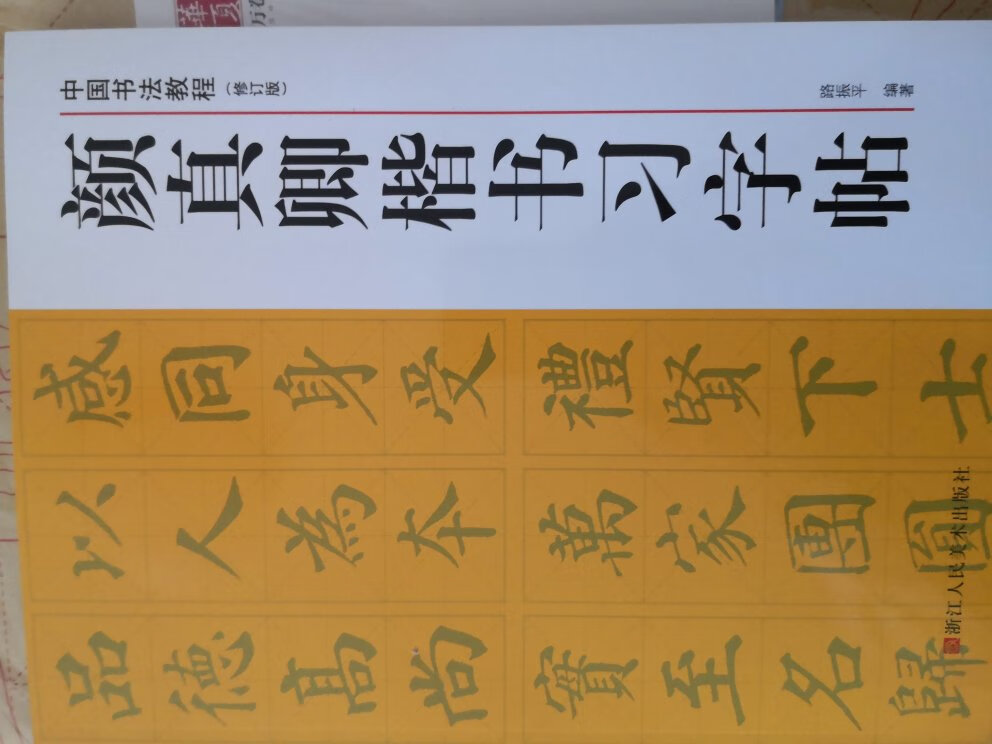 中国书法教程（修订版）
路振平 编著
颜真卿楷书习字帖
感同身受 禮賢下士
以人為本 萬家團圓
品德高尚 實至名歸
浙江人民美术出版社